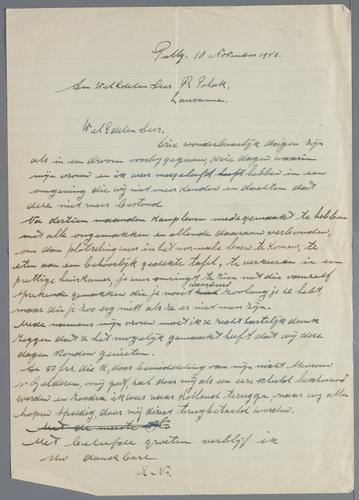 Pully, 10 November 1943.
Aan WelEdelen Heer R Polak,
Lausanne.
WelEdelen Heer,
Drie wonderbaarlijk dagen zijn
als in een droom voorbijgegaan, drie dagen waarin
mijn vrouw en ik weer meegeleefd hebben in een
omgeving die wij niet meer kenden en dachten dat
deze niet meer bestond.
Na dertien maanden kampleven medegemaakt te hebben
met alle ongemakken en ellende daaraan verbonden,
om dan plotseling weer in het normale leven te komen, te
eten aan een behoorlijk gedekte tafel, te verkeeren in een
prettige huiskamer, je weer omringd te zien met die vanzelf
sprekende gemakken die je nooit waardeerd zoolang je ze hebt
maar die je zoo erg mist als ze er niet meer zijn.
Mede namens mijn vrouw moet ik U recht hartelijk dank
zeggen dat U het mogelijk gemaakt heeft dat wij deze
dagen konden genieten.
De 50 frs. die U, door bemiddeling van mijn nicht Mevrouw
v. Gelderen, mij gaf zal door mij als een eereschuld beschouwd
worden en zoodra ik weer naar Holland terugga, naar wij allen
hopen spoedig, door mij direct terugbetaald worden.
Met de meeste
Met beleefde groeten verblijf ik
Uw dankbare